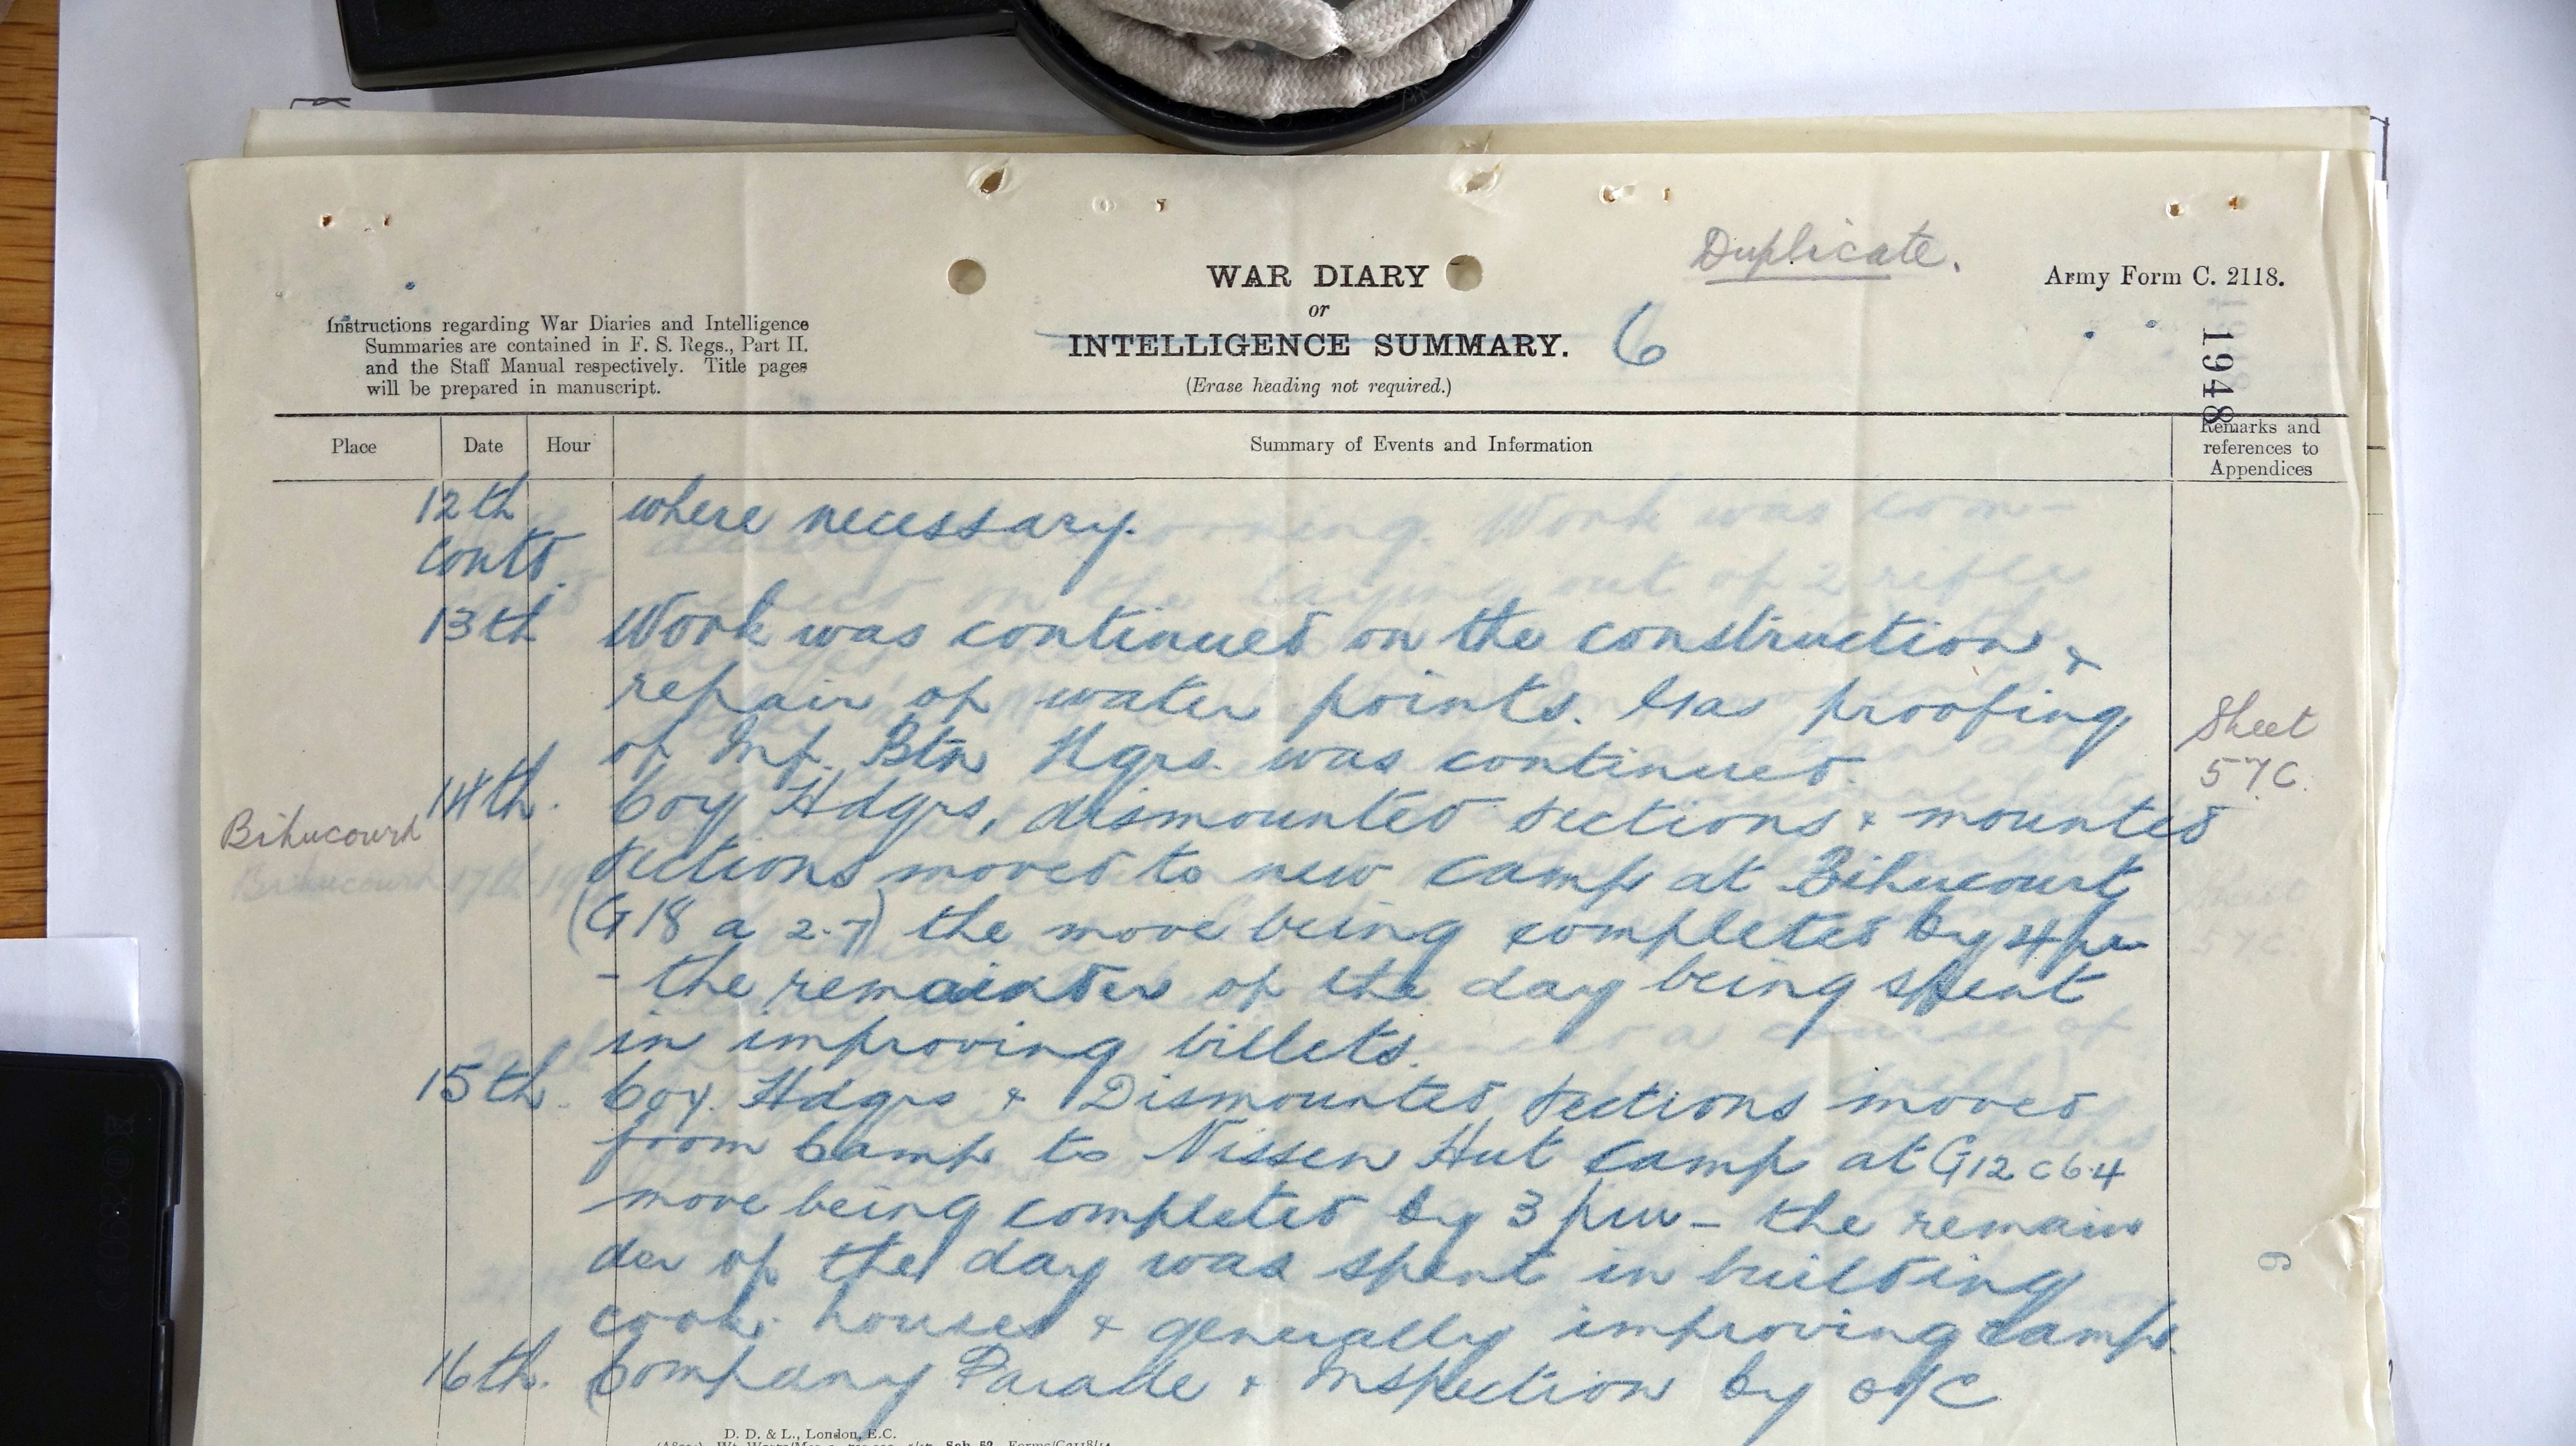 Duplicate.
WAR DIARY
Army Form C. 2118.
or
INTELLIGENCE SUMMARY. 6
(Erase heading not required.)
Instructions regarding War Diaries and Intelligence
Summaries are contained in F. S. Regs., Part II.
and the Staff Manual respectively. Title pages
will be prepared in manuscript.
1948
Place Date Hour Summary of Events and Information Remarks and
references to
Appendices
12th where necessary.
contd.
13th Work was continued on the construction &
repair of water points. Gas proofing
of Inf. Btn Hqrs. was continued.
Sheet
57C.
14th. Coy Hdqrs, dismounted sections & mounted
Bihucourt sections moved to new camp at Bihucourt
(G18 a 2.7) the move being completed by 4pm
- the remainder of the day being spent
in improving billets.
15th. Coy. Hdqrs & Dismounted Sections moved
from Camp to Nissen Hut Camp at G12 c 6.4
move being completed by 3 pm - the remain
der of the day was spent in building
cook houses & generally improving camp.
16th. Company Parade & Inspection by o/C
6
D. D. & L., London, E.C.